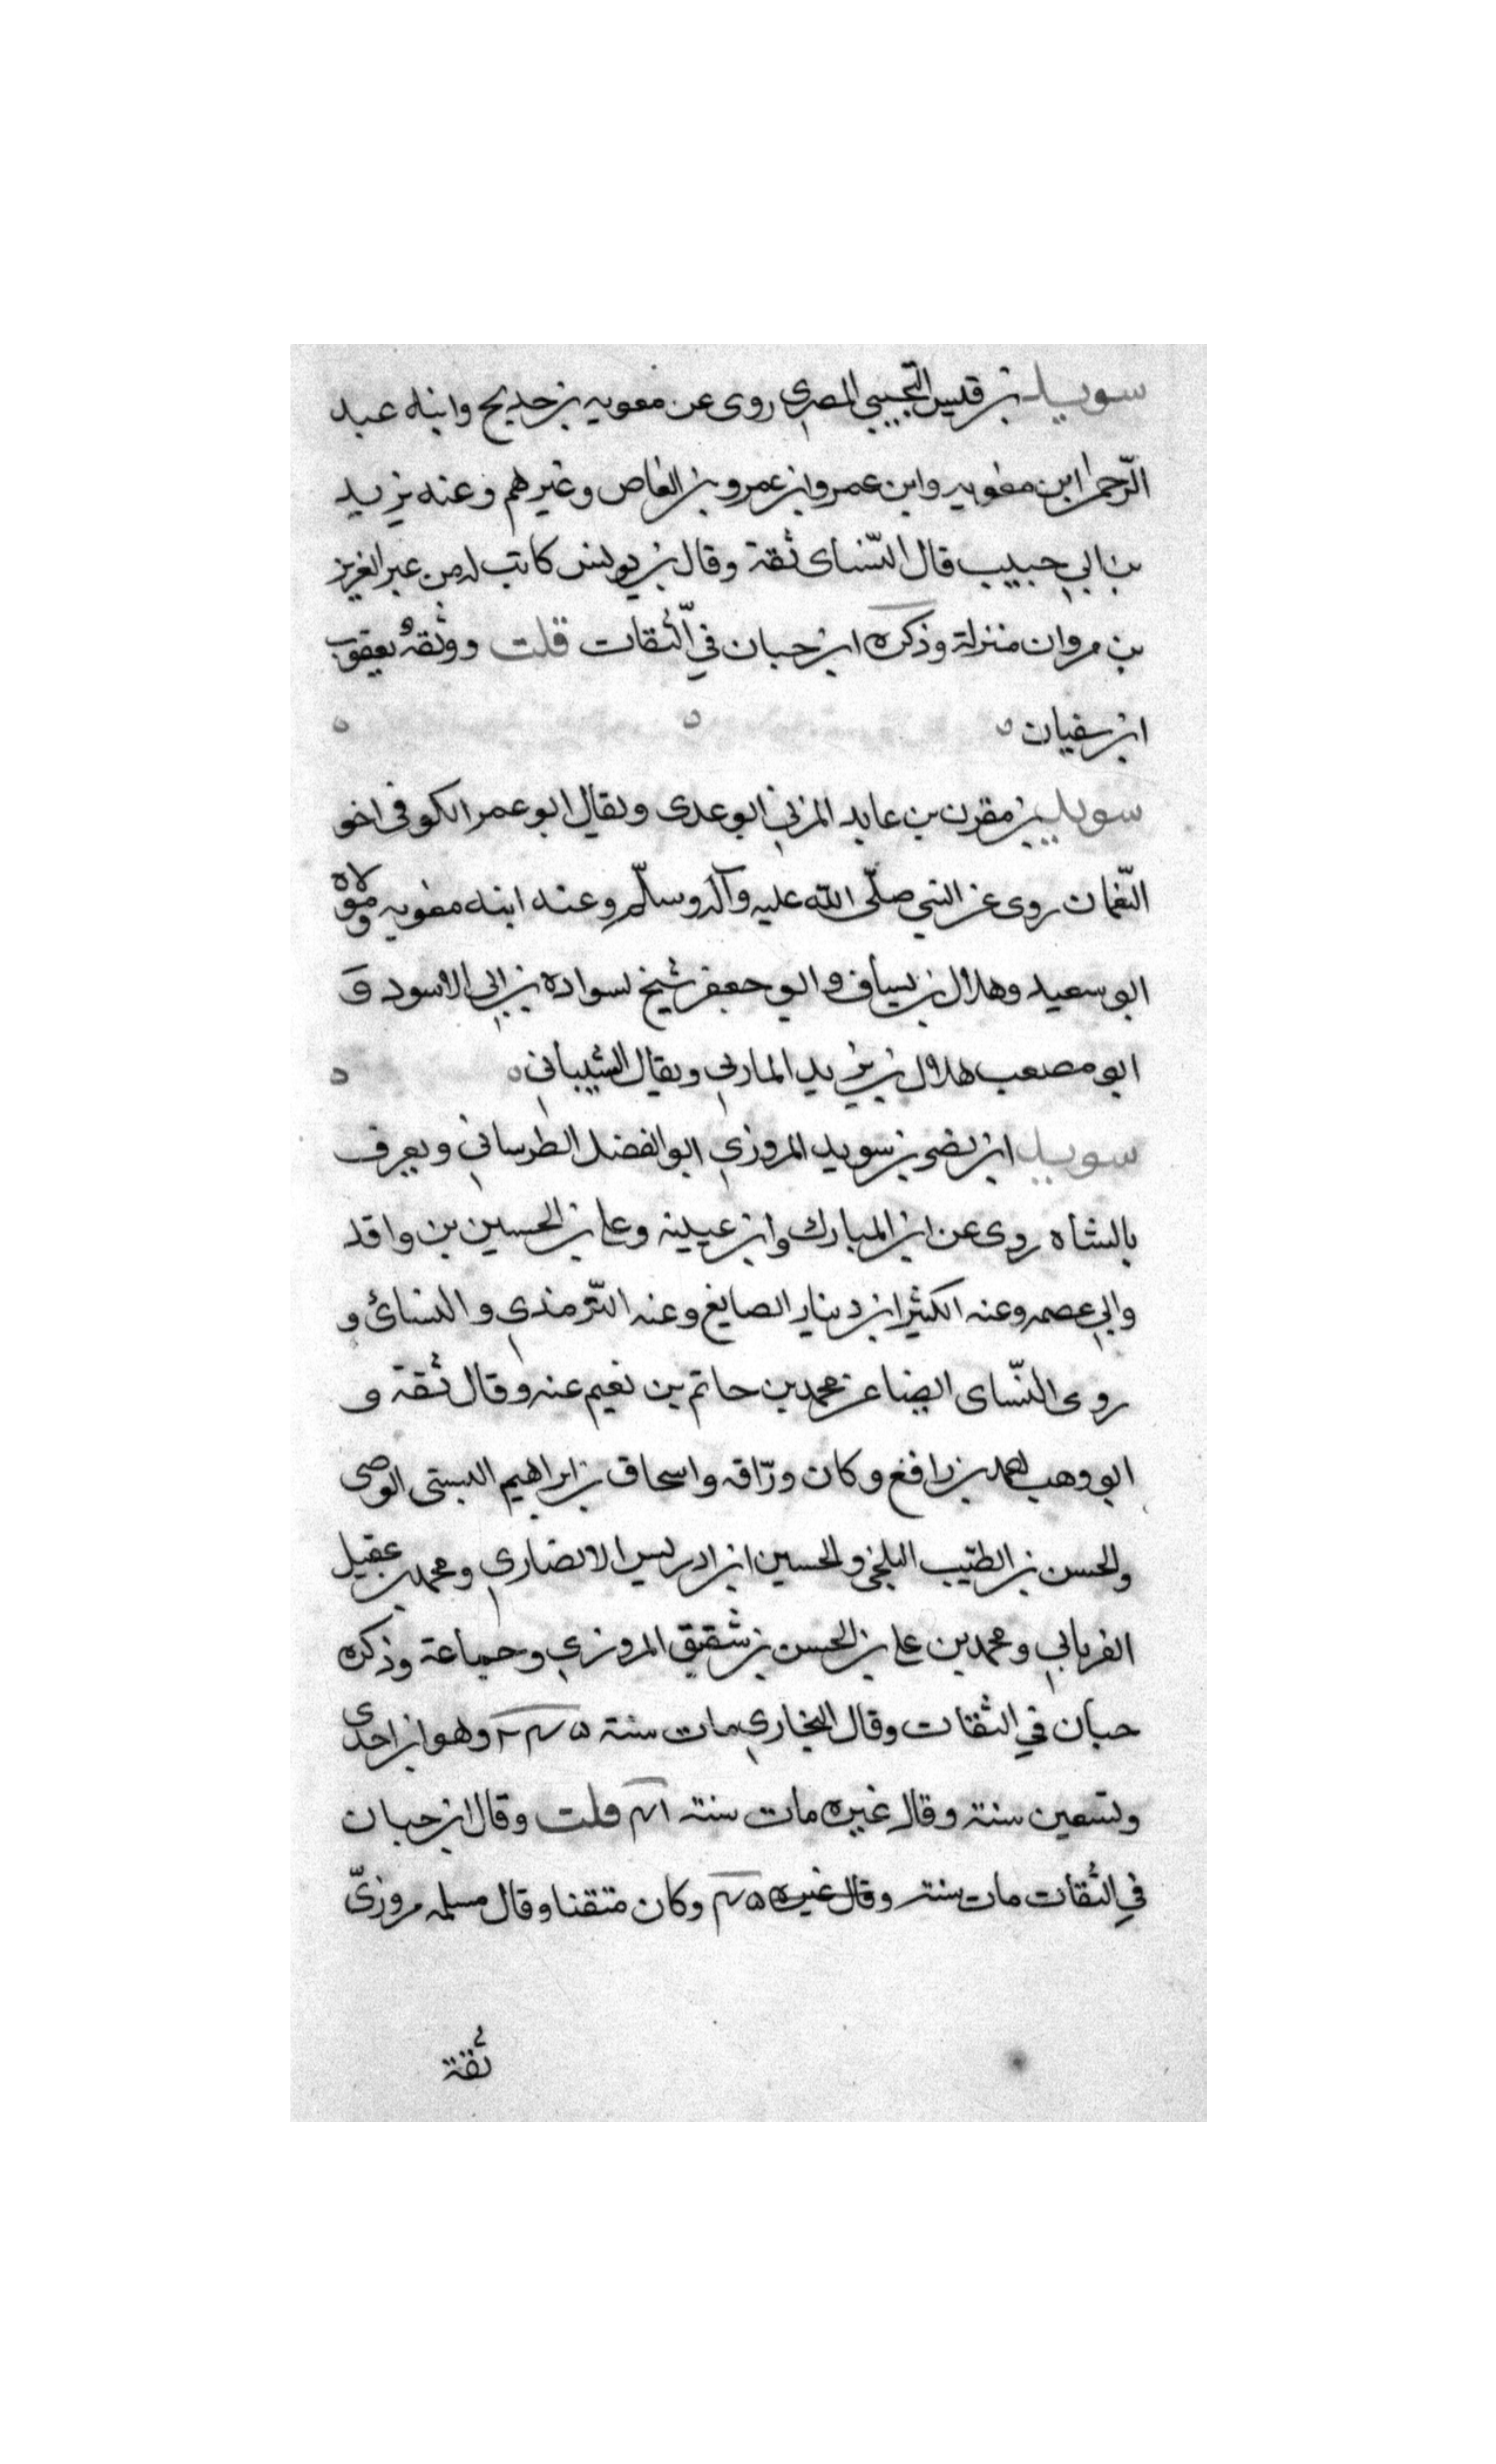 سويد بن قيس التجيبي المصري روى عن معويه بن حديج وابنه عبد
الرّحمن ابن معويه وابن عمر وابن عمرو بن العاص وغيرهم وعنه يزيد
بن ابي حبيب قال النّساى ثقة وقال بن يونس كانت له من عبد العزيز
بن مروان منزلة وذكره ابن حبان في الثّقات قلت ووثقه يعقوب
ابن سفيان
سويد بن مقرن بن عايد المزني ابو عدى ويقال ابو عمر الكوفى اخو
النّعمان روى عن النبي صلّى الله عليه وآله وسلّم وعنه ابنه معويه ومولاه
ابو سعيد وهلال بن يساف وابو جعفر شيخ لسواده بن ابي الاسود و
ابو مصعب هلال بن يزيد المازني ويقال الشيباني
سويد ابن نصر بن سويد المروزي ابو الفضل الطرساني ويعرف
بالشاه روى عن ابن المبارك وابن عيينه وعلي بن الحسين بن واقد
وابي عصمه وعنه الكثير ابن دينار الصايغ وعنه التّرمذي والنسائ و
روى النّساى ايضا عن محمد بن حاتم بن نعيم عنه وقال ثقة و
ابو وهب احمد بن رافع وكان ورّاقه واسحاق بن ابراهيم البستى
والحسن بن الطيّب البلخي والحسين ابن ادريس الانصاري ومحمد بن عقيل
الفريابي ومحمد بن علي بن الحسن بن شقيق المروزي وجماعة وذكره
حبان في الثقات وقال البخاري مات سنة وهو ابن احدى
وتسعين سنة وقال غيره مات سنة قلت وقال ابن حبان
في الثقات مات سنة وقال غيره وكان متقنا وقال مسلمه مروزيّ
ثقة